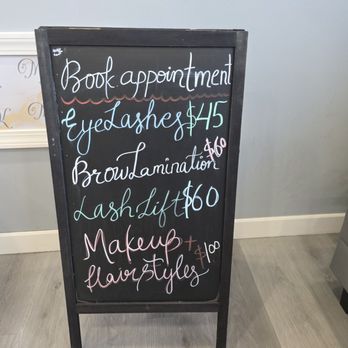 Book appointment
EyeLashes $45
BrowLamination $60
LashLift $60
Makeup +
Hairstyles $100